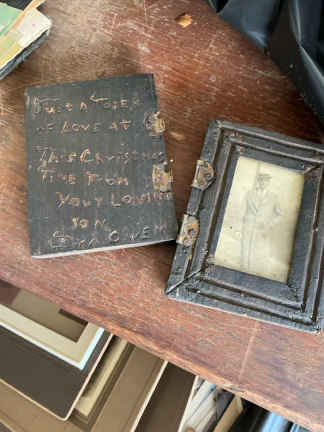 Just A Token
of Love at
This Christmas
Time From
Your Loving
Son